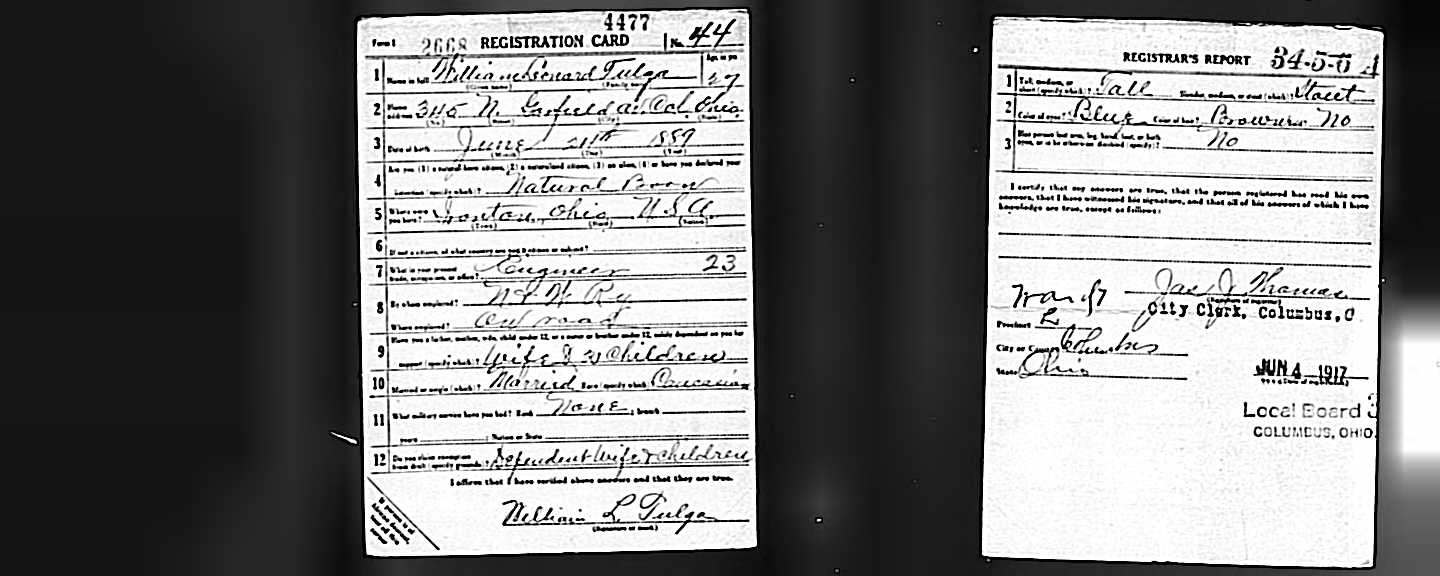 4477
Form 1 2668 REGISTRATION CARD No. 44
1 Name in full William Lenard Fulga Age, in yrs 27
(Given name) (Family name)
2 Home address 345 N. Garfield av Col. Ohio
(No.) (Street) (City) (State)
3 Date of birth June 21th 1889
(Month) (Day) (Year)
4 Are you (1) a natural born citizen, (2) a naturalized citizen, (3) an alien, (4) or have you declared your
intention (specify which)? Natural Born
5 Where were you born? Ironton, Ohio U.S.A.
(Town) (State) (Nation)
6 If not a citizen, of what country are you a citizen or subject?
7 What is your present trade, occupation, or office? Engineer 23
8 By whom employed? N & W Ry
Where employed? On road
9 Have you a father, mother, wife, child under 12, or a sister or brother under 12, solely dependent on you for
support (specify which)? Wife & Children
10 Married or single (which)? Married Race (specify which)? Caucasian
11 What military service have you had? Rank None ; branch
years ; Nation or State
12 Do you claim exemption from draft (specify grounds)? Dependent Wife & children
I affirm that I have verified above answers and that they are true.
William L. Fulga
(Signature or mark)
REGISTRAR'S REPORT 34-5-6 A
1 Tall, medium, or short (specify which)? Tall Slender, medium, or stout (which)? Stout
2 Color of eyes? Blue Color of hair? Brown No
3 Has person lost arm, leg, hand, foot, or both eyes, or is he otherwise disabled (specify)? No
I certify that my answers are true, that the person registered has read his own
answers, that I have witnessed his signature, and that all of his answers of which I have
knowledge are true, except as follows:
Jas J Thomas
(Signature of registrar)
City Clerk, Columbus, O
Precinct L
City or County Columbus
State Ohio
JUN 4 1917
(Date of registration)
Local Board 3
COLUMBUS, OHIO.